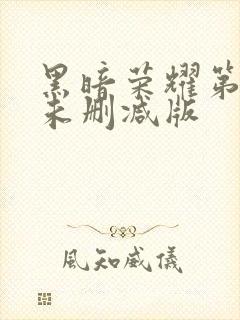 黑暗荣耀第
未删减版
風知威儀